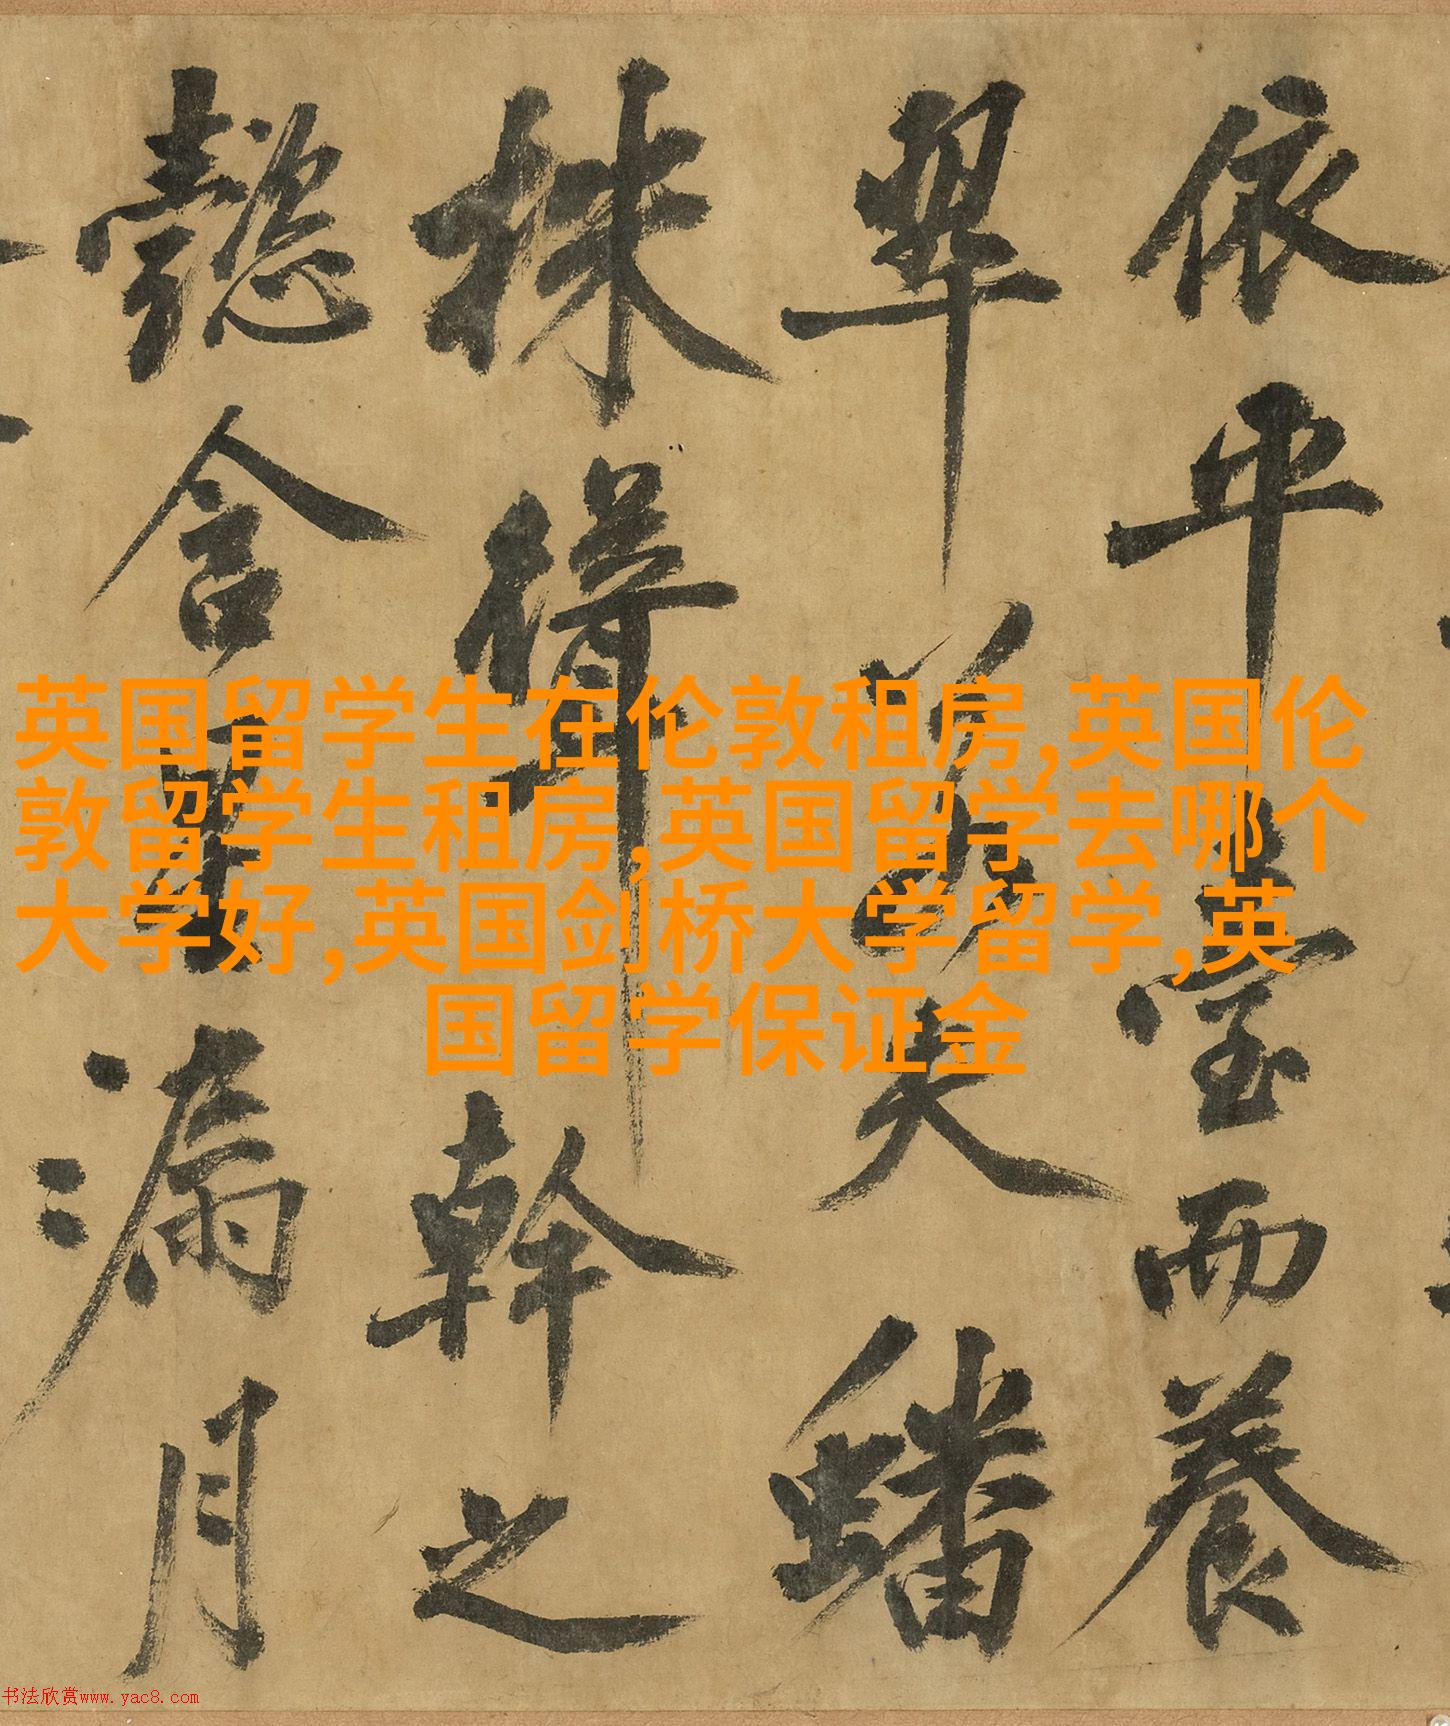 依平臺而養
翠若夫蟠
株幹之
懿含星漏月
英国留学生在伦敦租房,英国伦
敦留学生租房,英国留学去哪个
大学好,英国剑桥大学留学,英
国留学保证金
书法欣赏www.yac8.com